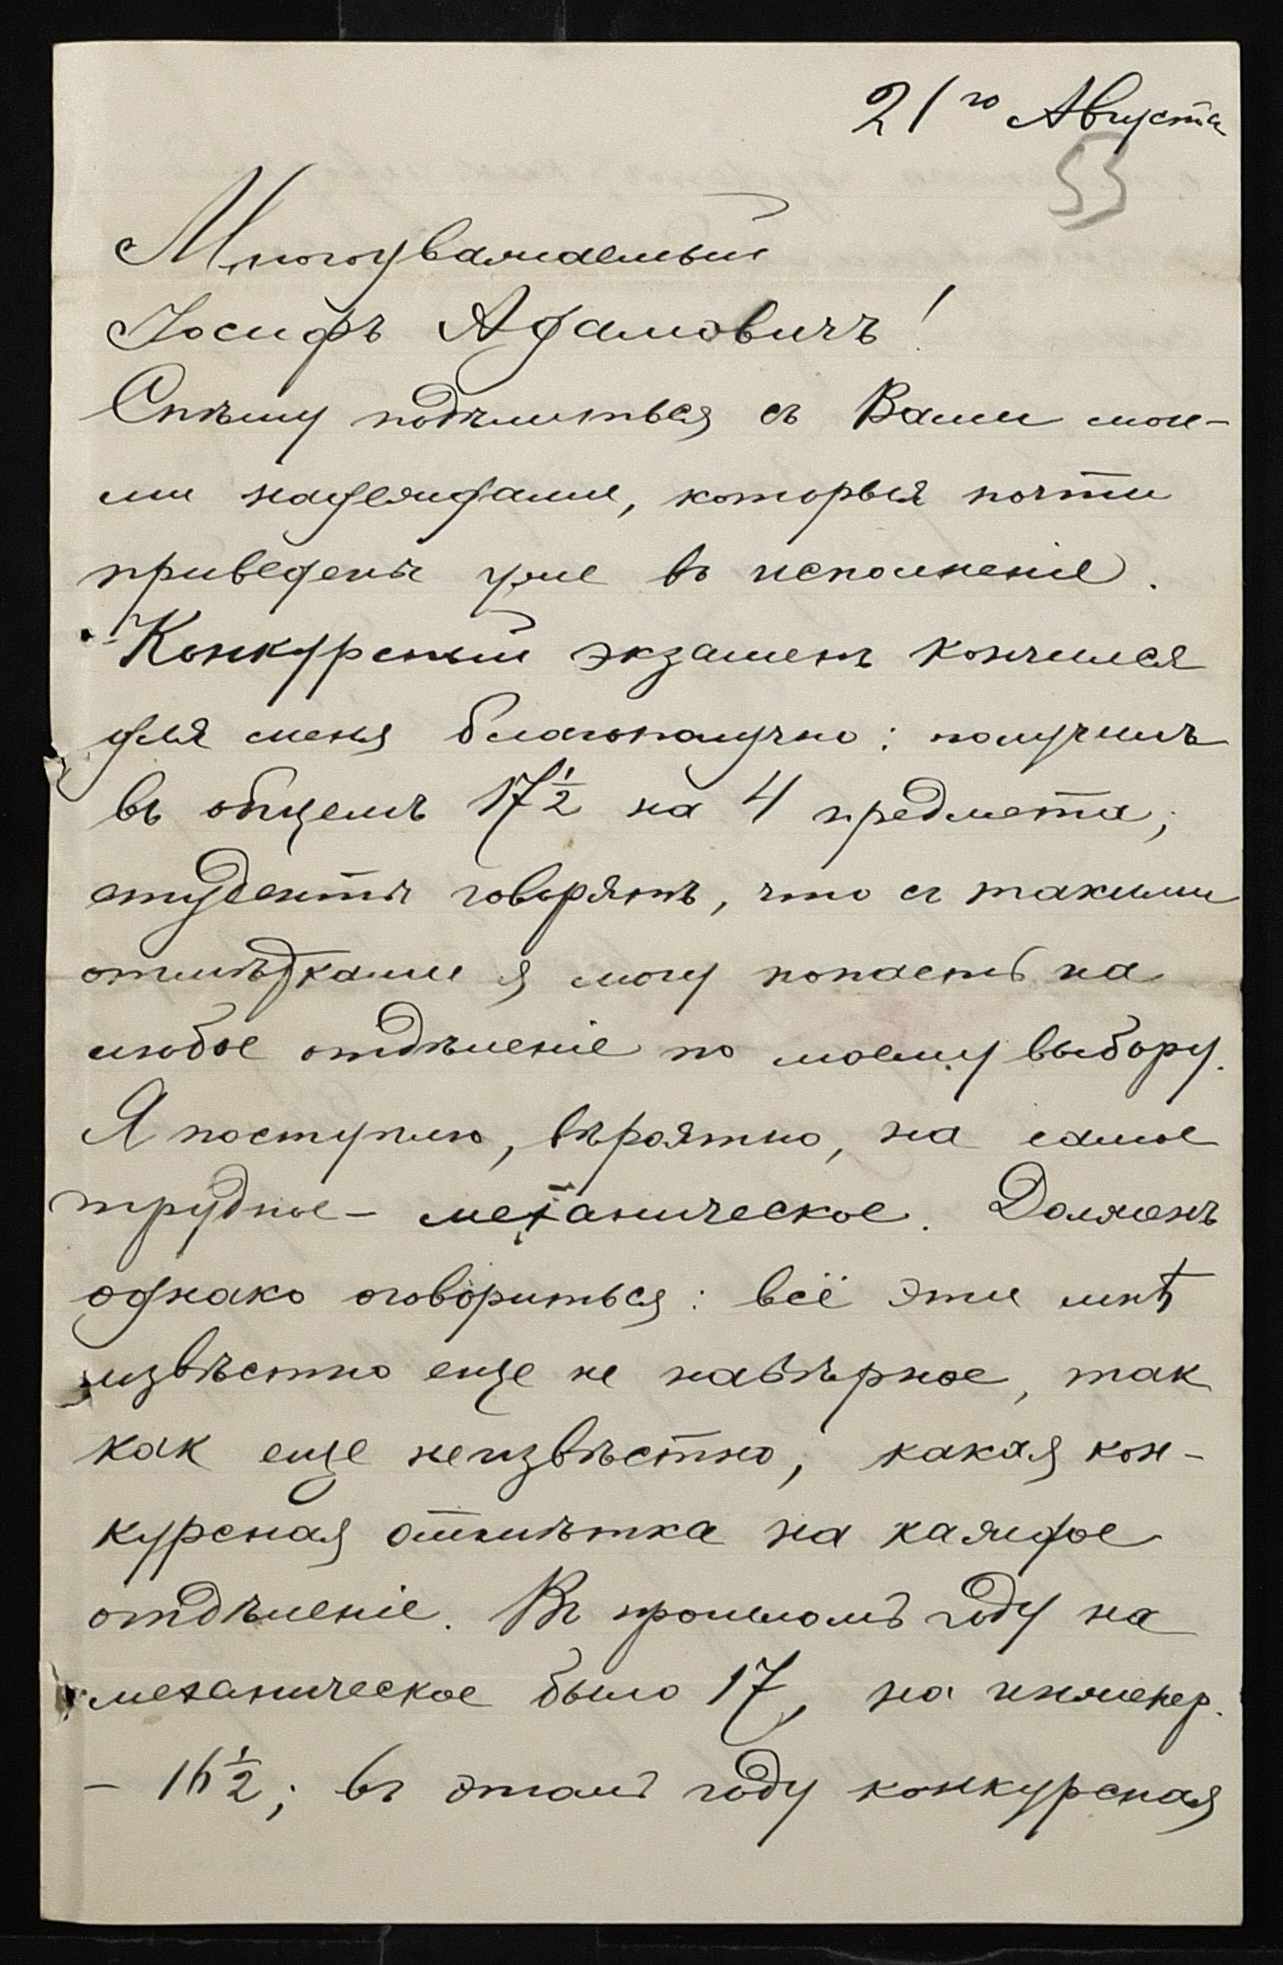 21го Августа
53
Многоуважаемый
Іосифъ Адамовичъ!
Спѣшу подѣлиться съ Вами мои-
ми надеждами, которыя почти
приведены уже въ исполненіе.
Конкурсный экзаменъ кончился
для меня благополучно: получилъ
въ общемъ 17 1/2 на 4 предмета;
студенты говорятъ, что съ такими
отмѣтками я могу попасть на
любое отдѣленіе по моему выбору.
Я поступлю, вѣроятно, на самое
трудное – механическое. Долженъ
однако оговориться: всё это мнѣ
извѣстно еще не навѣрное, так
как еще неизвѣстно, какая кон-
курсная отмѣтка на каждое
отдѣленіе. Въ прошломъ году на
механическое было 17, на инженер.
– 16 1/2; въ этомъ году конкурсная